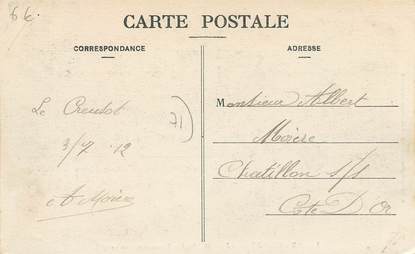 6 €.
CARTE POSTALE
CORRESPONDANCE
ADRESSE
Le Creusot
3/7 12
A Moère
71
Monsieur Albert
Moère
Chatillon s/s
Cote D'Or